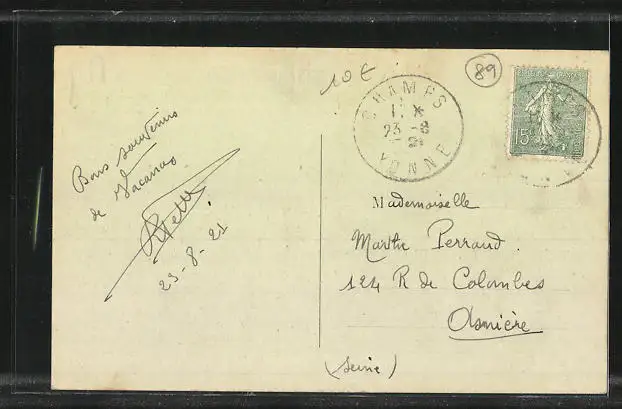 10 €
89
CHAMPS
YONNE
23 - 8
21
15c
Bons souvenirs
de Vacances
23-8-21
Mademoiselle
Marthe Perraud
124 R de Colombes
Asnière
(Seine)